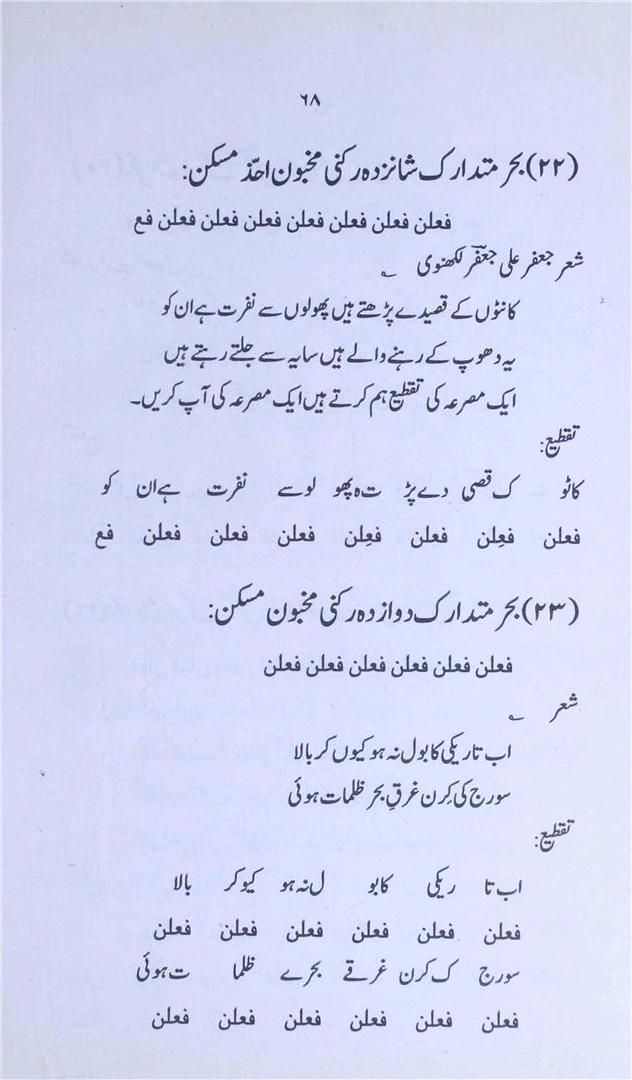 ۶۸
(۲۲) بحر متدارک شانزدہ رکنی مخبون احذّ مسکن:
فعلن فعلن فعلن فعلن فعلن فعلن فعلن فع
شعر جعفر علی جعفرؔ لکھنوی ؎
کانٹوں کے قصیدے پڑھتے ہیں پھولوں سے نفرت ہے ان کو
یہ دھوپ کے رہنے والے ہیں سایہ سے جلتے رہتے ہیں
ایک مصرعہ کی تقطیع ہم کرتے ہیں ایک مصرعہ کی آپ کریں۔
تقطیع:
کاٹو ک قصی دے پڑ ت ہ پھو لو سے نفرت ہے ان کو
فعلن فعِلن فعلن فعِلن فعلن فعلن فعلن فع
(۲۳) بحر متدارک دوازدہ رکنی مخبون مسکن:
فعلن فعلن فعلن فعلن فعلن فعلن
شعر ؎
اب تاریکی کا بول نہ ہو کیوں کر بالا
سورج کی کِرن غرقِ بحرِ ظلمات ہوئی
تقطیع:
اب تا ریکی کا بو ل نہ ہو کیو کر بالا
فعلن فعلن فعلن فعلن فعلن فعلن
سورج ک کرن غرقے بحرے ظلما ت ہوئی
فعلن فعلن فعلن فعلن فعلن فعلن